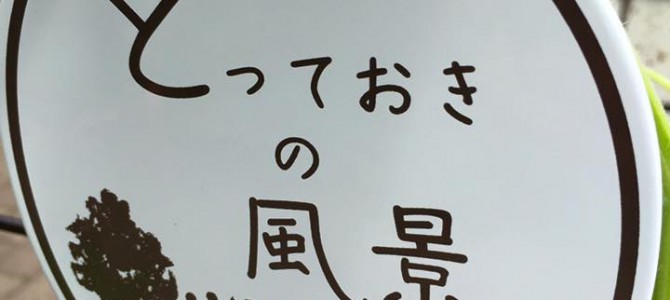 とっておき
の
風景